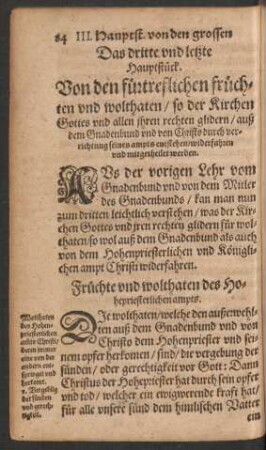 84 III. Hauptst. von den grossen
Das dritte vnd letzte
Hauptstück.
Von den fürtreflichen früch-
ten vnd wolthaten / so der Kirchen
Gottes vnd allen ihren rechten glidern / auß
dem Gnadenbund vnd von Christo durch ver-
richtung seines ampts entstehen / widerfahren
vnd mitgetheilet werden.
AVs der vorigen Lehr vom
Gnadenbund vnd von dem Mitler
des Gnadenbunds / kan man nun
zum dritten leichtlich verstehen / was der Kir-
chen Gottes vnd jren rechten glidern für wol-
thaten / so wol auß dem Gnadenbund als auch
von dem Hohenpriesterlichen vnd Königli-
chen ampt Christi widerfahren.
Früchte vnd wolthaten des Ho-
henpriesterlichen ampts.
DIe wolthaten / welche den außerwehl-
ten auß dem Gnadenbund vnd von
Christo dem Hohenpriester vnd sei-
nem opfer herkomen / sind / die vergebung der
sünden / oder gerechtigkeit vor Gott: Dann
Christus der Hohepriester hat durch sein opfer
vnd tod / welcher ein ewigwerende kraft hat /
für alle vnsere sünd dem himlischen Vatter
ein
Wolthaten
des Hohen-
priesterlichen
ampts Christi
deren immer
eine von der
andern ent-
springet vnd
herkomt.
1. Vergebũg
der sünden